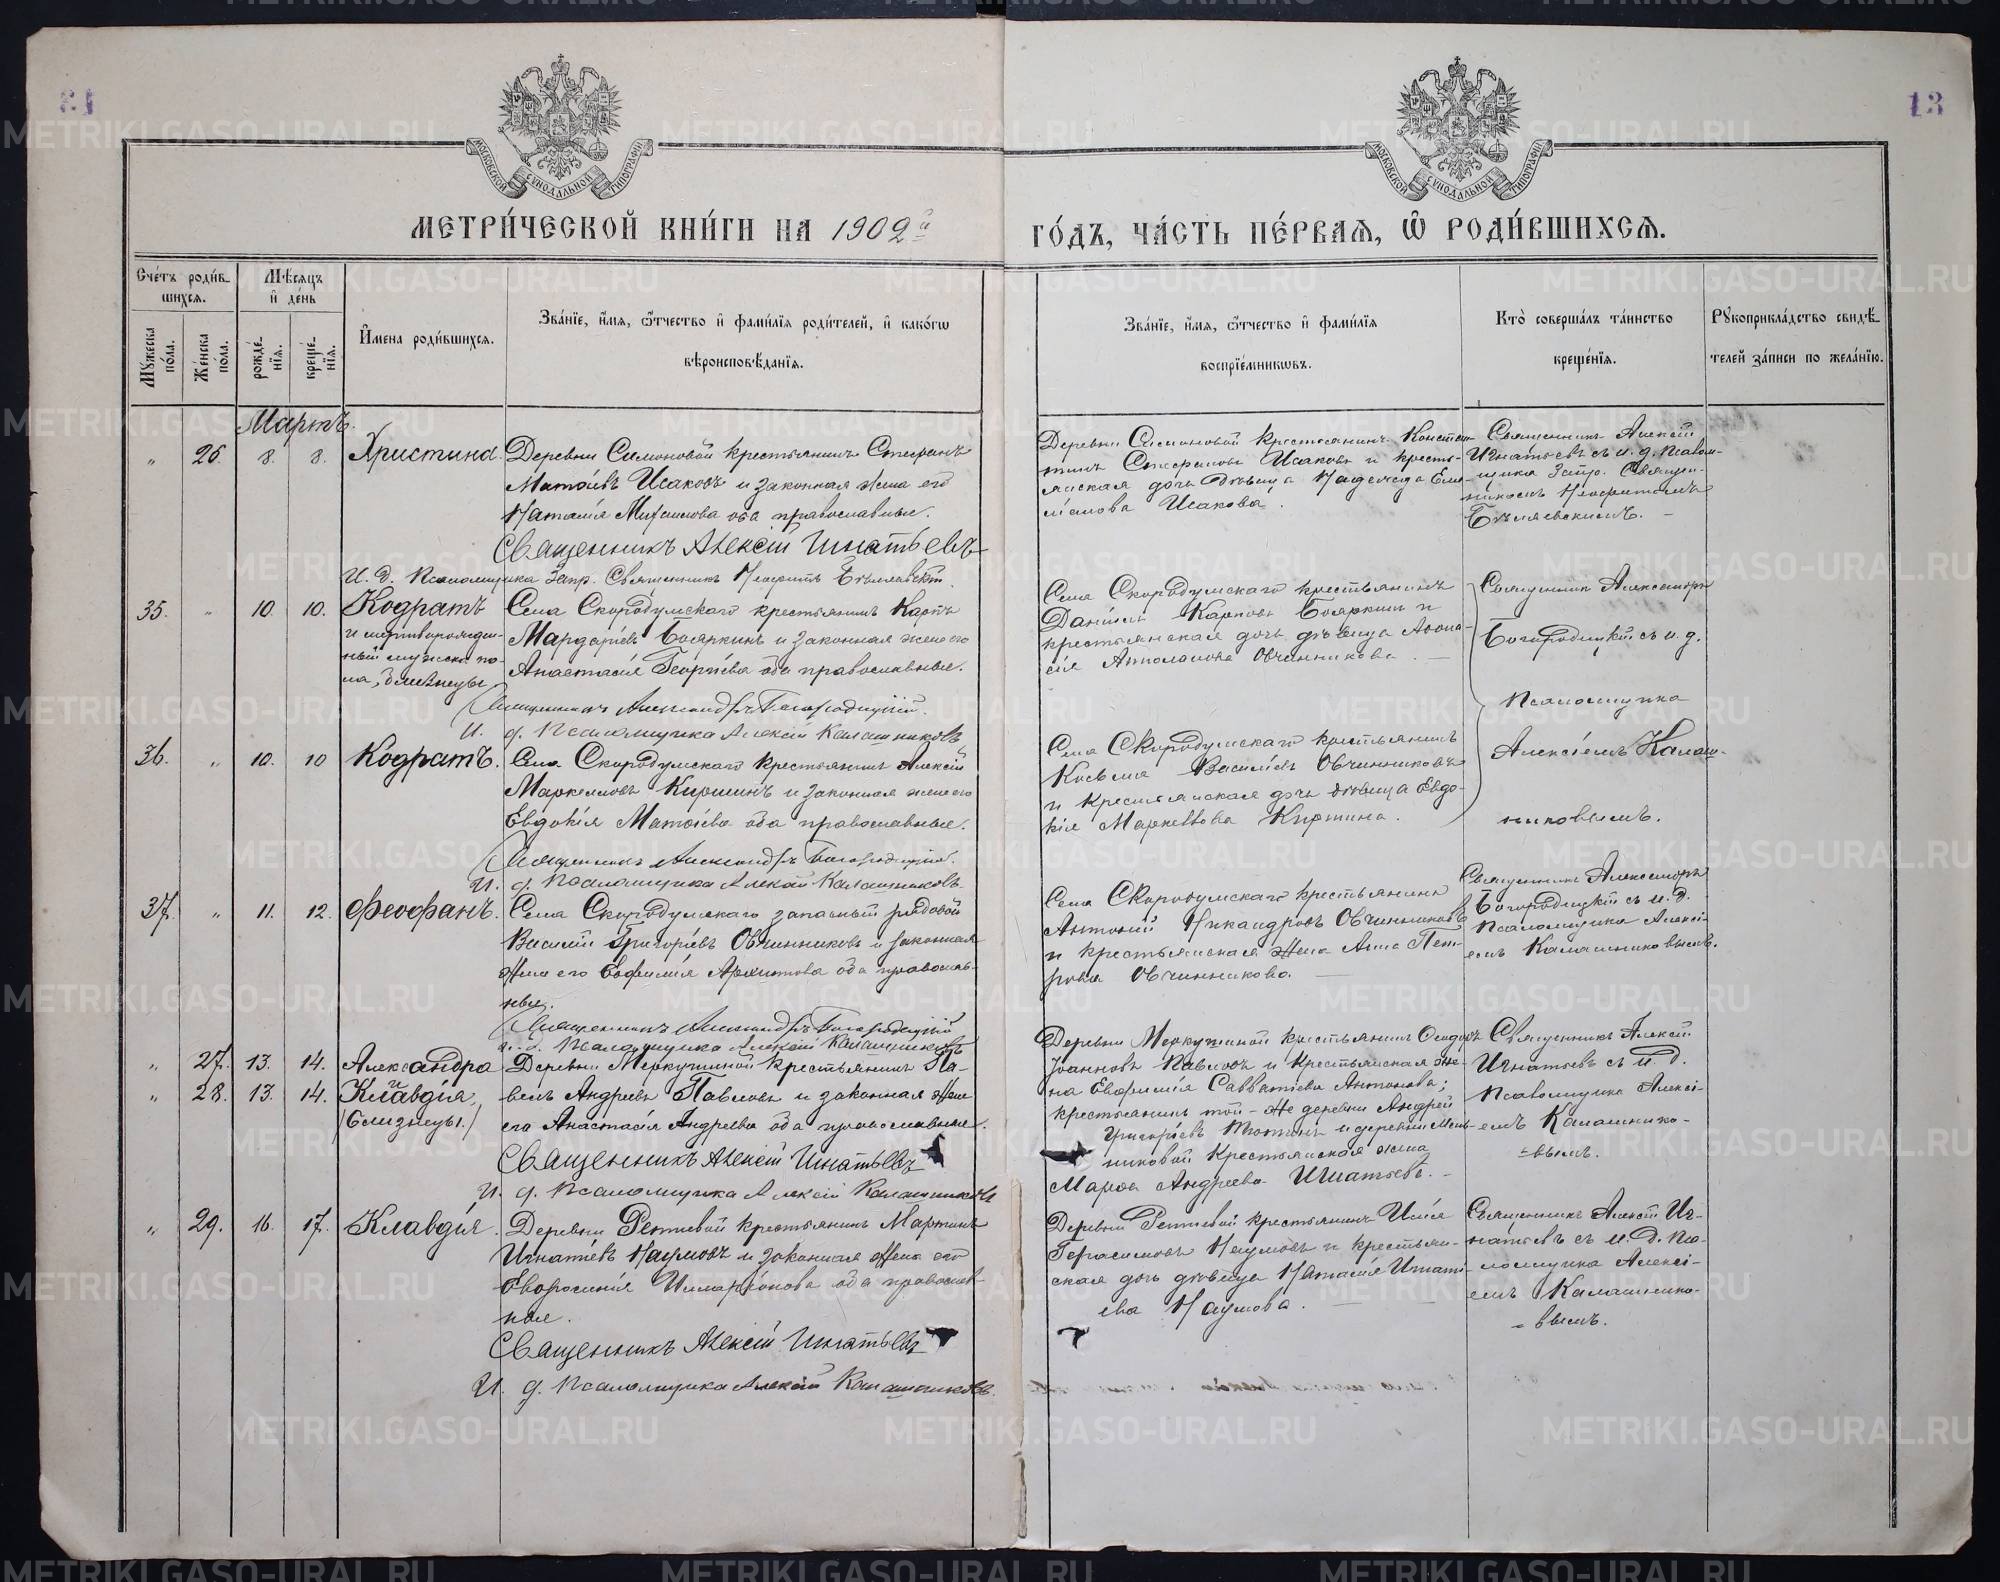 13
МОСКОВСКОЙ СѴНОДАЛЬНОЙ ТИПОГРАФІИ
МОСКОВСКОЙ СѴНОДАЛЬНОЙ ТИПОГРАФІИ
МЕТРИ́ЧЕСКОЙ КНИ́ГИ НА 1902й
ГО́ДЪ, ЧА́СТЬ ПЕ́РВАѦ, Ѽ РОДИ́ВШИХСѦ.
Сче́тъ роди́вшихсѧ.
Мꙋ́жеска по́ла.
Же́нска по́ла.
Мѣ́сѧцъ и҆ де́нь
рожде́нїѧ.
креще́нїѧ.
И҆мена роди́вшихсѧ.
Зва́нїе, и҆́мѧ, ѻ҆́тчество и҆ фами́лїѧ роди́телей, и҆ како́гѡ
вѣроисповѣ́данїѧ.
Зва́нїе, и҆́мѧ, ѻ҆́тчество и҆ фами́лїѧ
воспрїе́мникѡвъ.
Кто̀ соверша́лъ та́инство
креще́нїѧ.
Рꙋкоприкла́дство свидѣ́телей за́писи по жела́нїю.
Мартъ.
„ 26. 8. 8. Христина.
Деревни Симоновой крестьянинъ Стефанъ
Матѳіевъ Исаковъ и законная жена его
Наталія Михаилова оба православные.
Священникъ Алексій Игнатьевъ
И. д. псаломщика запр. Священникъ Неофитъ Бѣляевскій.
Деревни Симоновой крестьянинъ Констан-
тинъ Стефановъ Исаковъ и кресть-
янская дочь дѣвица Надежда
Исакова.
Священникъ Алексій
Игнатьевъ съ и. д. псалом-
щика запр. Священ-
никомъ Неофитомъ
Бѣляевскимъ. —
35. „ 10. 10. Кодратъ
и мертворожден-
ный мужска по-
ла, близнецы.
Села Скородумскаго крестьянинъ Карпъ
Мардаріевъ Бояркинъ и законная жена его
Анастасія Георгіева оба православные.
Священникъ Александръ Богородицкій.
И. д. псаломщика Алексій Калашниковъ
Села Скородумскаго крестьянинъ
Даніилъ Карповъ Бояркинъ и
крестьянская дочь дѣвица Аѳана-
сія Овчинникова. —
Священникъ Александръ
Богородицкій съ и. д.
псаломщика
Алексіемъ Калаш-
никовымъ.
36. „ 10. 10 Кодратъ.
Села Скородумскаго крестьянинъ Алексій
Маркелловъ Киршинъ и законная жена его
Евдокія Матѳіева оба православные.
Священникъ Александръ Богородицкій.
И. д. псаломщика Алексій Калашниковъ.
Села Скородумскаго крестьянинъ
Косьма Василіевъ Овчинниковъ
и крестьянская дочь дѣвица Евдо-
кія Маркеллова Киршина.
37. „ 11. 12. Ѳеофанъ.
Села Скородумскаго запасный рядовой
Василій Григоріевъ Овчинниковъ и законная
жена его Евфимія Архипова оба православ-
ные.
Священникъ Александръ Богородицкій
и. д. псаломщика Алексій Калашниковъ
Села Скородумскаго крестьянинъ
Антоній Никандровъ Овчинниковъ
и крестьянская жена Анна Пет-
рова Овчинникова. —
Священникъ Александръ
Богородицкій съ и. д.
псаломщика Алексі-
емъ Калашниковымъ.
„ 27. 13. 14. Александра
„ 28. 13. 14. и Клавдія,
/близнецы./
Деревни Меркушиной крестьянинъ Па-
велъ Андреевъ Павловъ и законная жена
его Анастасія Андреева оба православные.
Священникъ Алексій Игнатьевъ
И. д. псаломщика Алексій Калашниковъ
Деревни Меркушиной крестьянинъ Ѳеодоръ
Іоанновъ Павловъ и крестьянская же-
на Евфимія Савватіева Антонова;
крестьянинъ той-же деревни Андрей
Григоріевъ и деревни Мель-
никовой крестьянская жена
Марѳа Андреева Игнатьева. —
Священникъ Алексій
Игнатьевъ съ и. д.
псаломщика Алексі-
емъ Калашнико-
=вымъ.
„ 29. 16. 17. Клавдія.
Деревни Ретневой крестьянинъ Мартинъ
Игнатіевъ Наумовъ и законная жена его
Евфросинія Илларіонова оба православ-
ные.
Священникъ Алексій Игнатьевъ
И. д. псаломщика Алексій Калашниковъ.
Деревни Ретневой крестьянинъ Илія
Герасимовъ Наумовъ и крестьян-
ская дочь дѣвица Наталія Игнаті-
ева Наумова. —
Священникъ Алексій Иг-
натьевъ съ и. д. пса-
ломщика Алексі-
емъ Калашнико-
=вымъ.